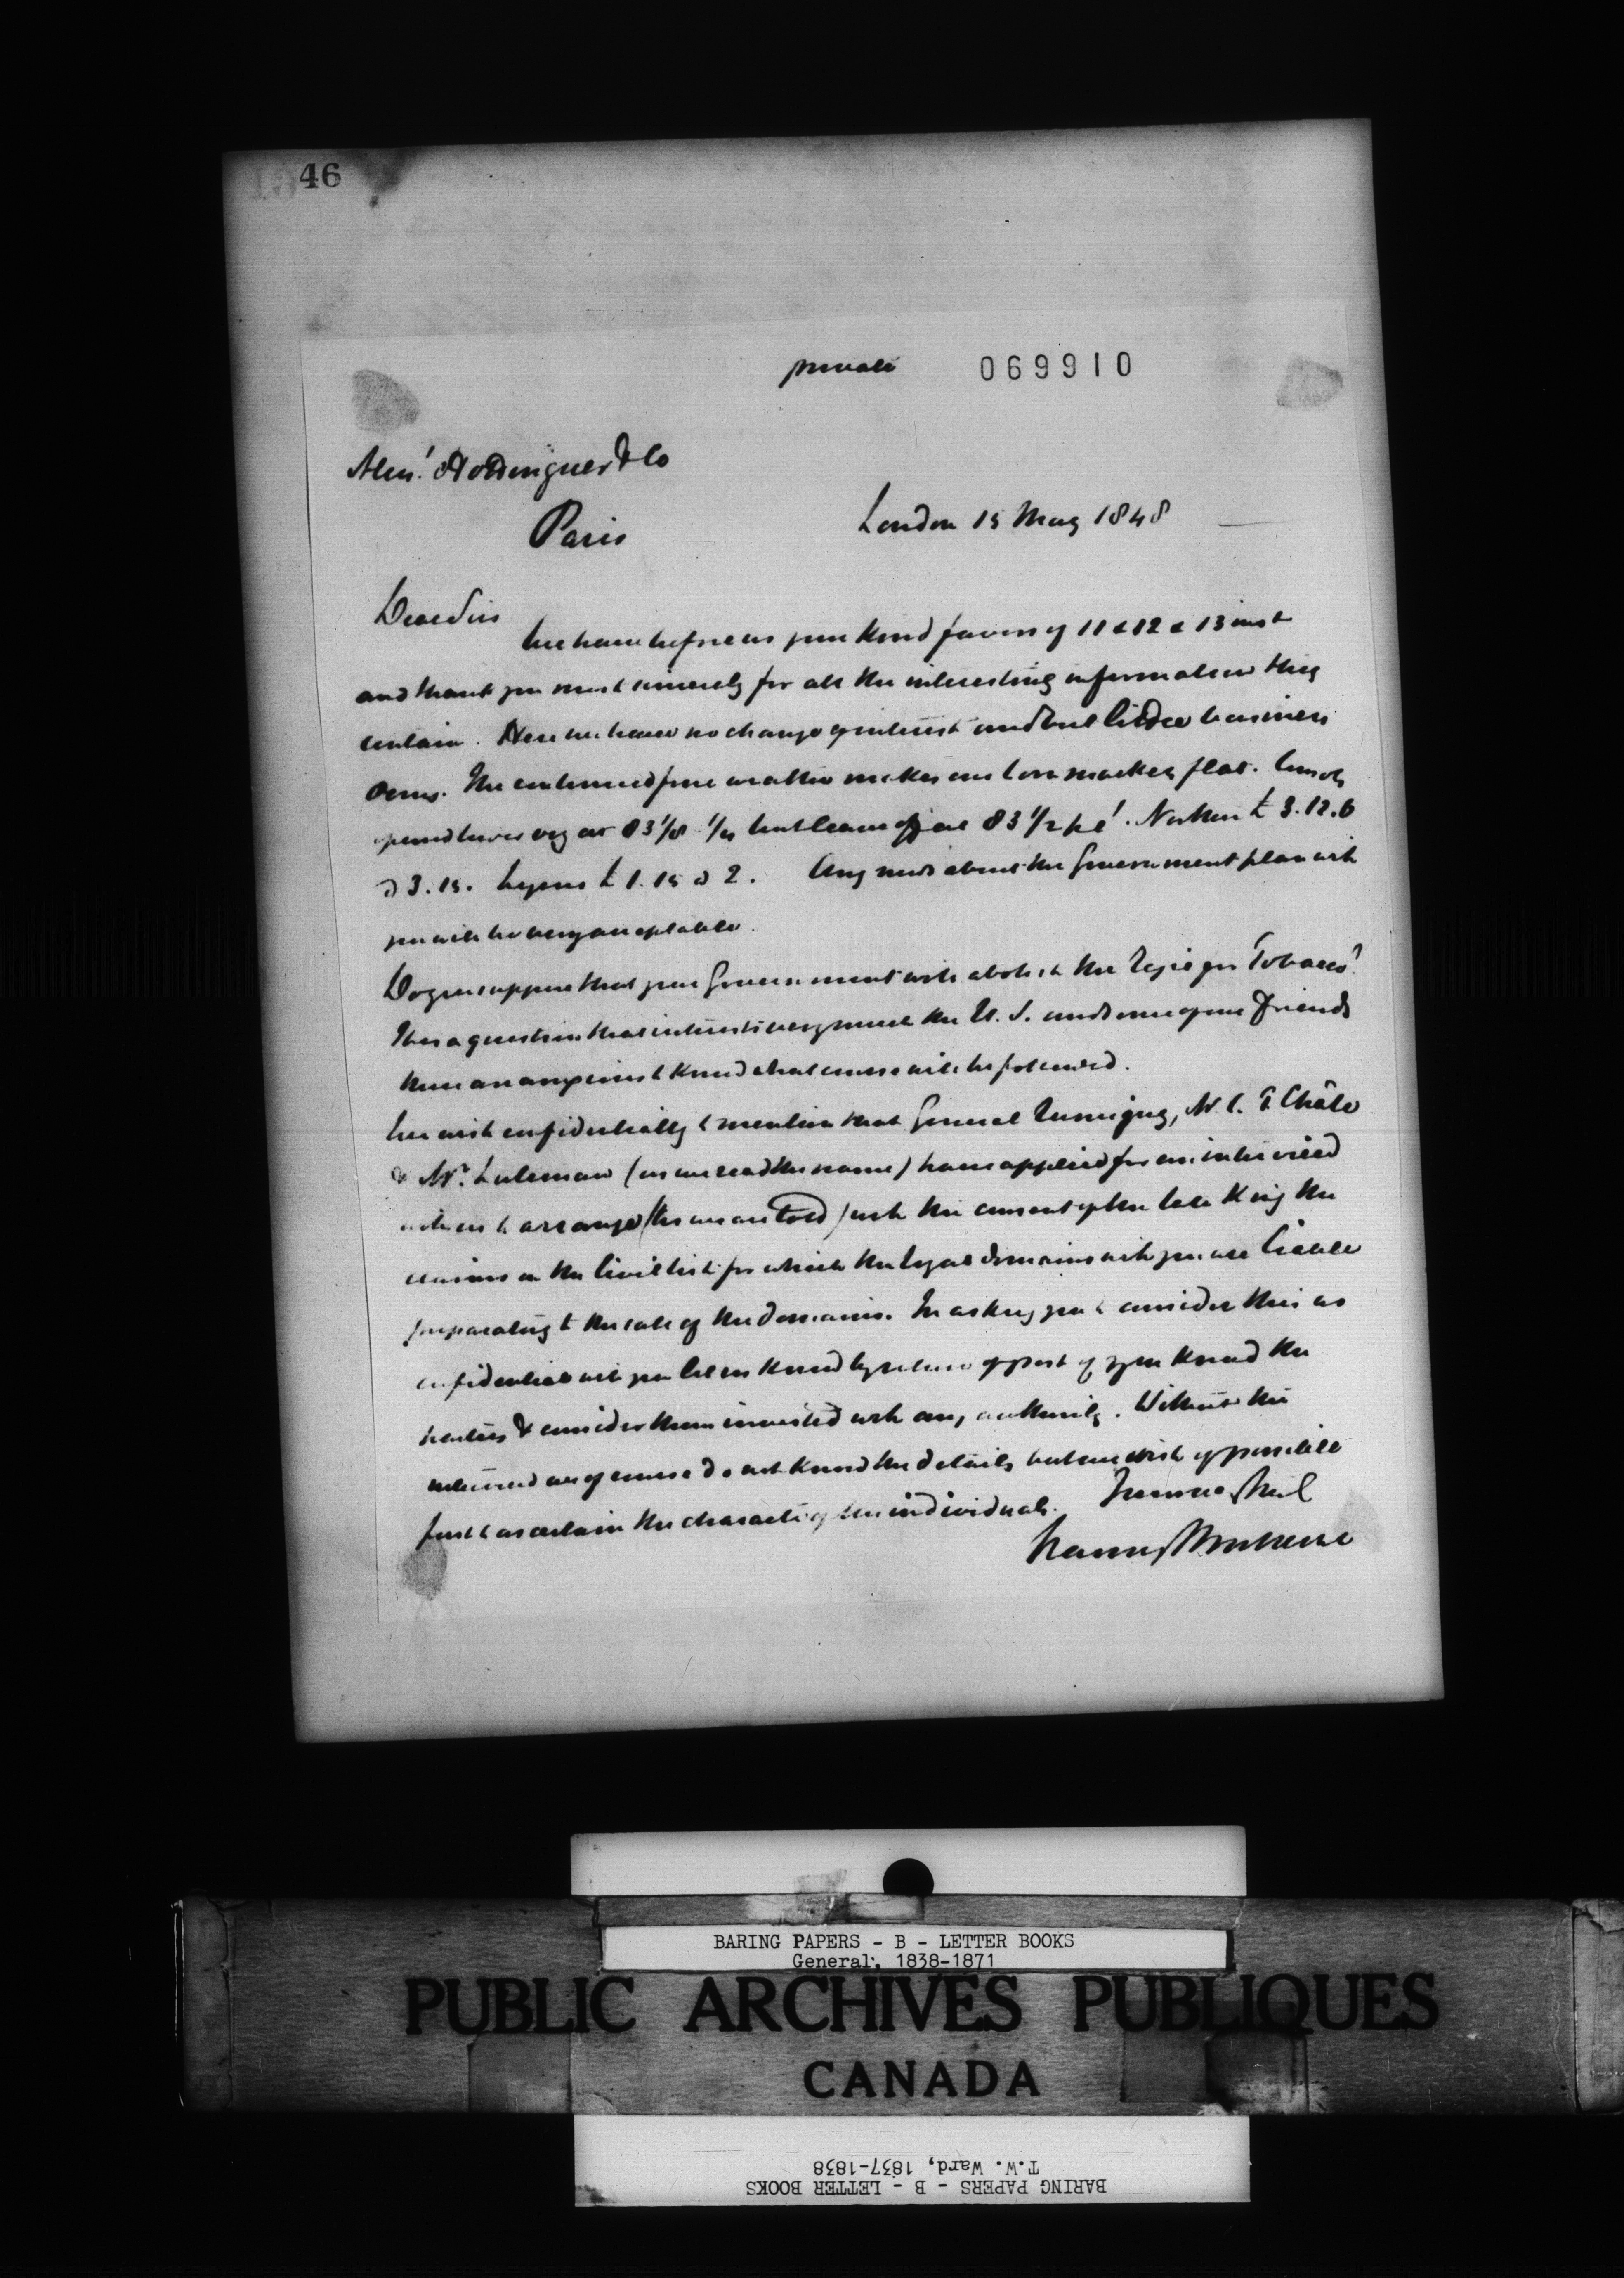 46
private 069910
Messrs Hottinguer & Co
Paris
London 15 May 1848
Dear Sirs
We have before us your kind favors of 11 & 12 & 13 inst
and thank you most sincerely for all the interesting information they
contain. Here we have no change of interest and but little business
doing. The continued fine weather makes our Corn market flat. Consols
opened heavy at 83 1/8 1/4 but leave off at 83 1/2. Northern £ 3.12.6
a 3.15. Lyons £ 1.15 a 2. Any news about the Government plan with
you will be very acceptable.
Do you suppose that your Government will abolish the Regie for Tobacco?
It is a question that interests very much the U. S. and some of our Friends
there are anxious to know what course will be followed.
We wish confidentially to mention that General Rumigny, M. C.
& Mr. (as we read the name) have applied for an interview
with us to arrange (as we are told) with the consent of the late King the
claims on the Civil list for which the Royal domains with you are liable
preparatory to the sale of the domains. In asking you to consider this as
confidential will you let us know by return of post if you know the
parties & consider them invested with any authority. Without the
interview we of course do not know the details but we wish if possible
first to ascertain the character of the individuals.